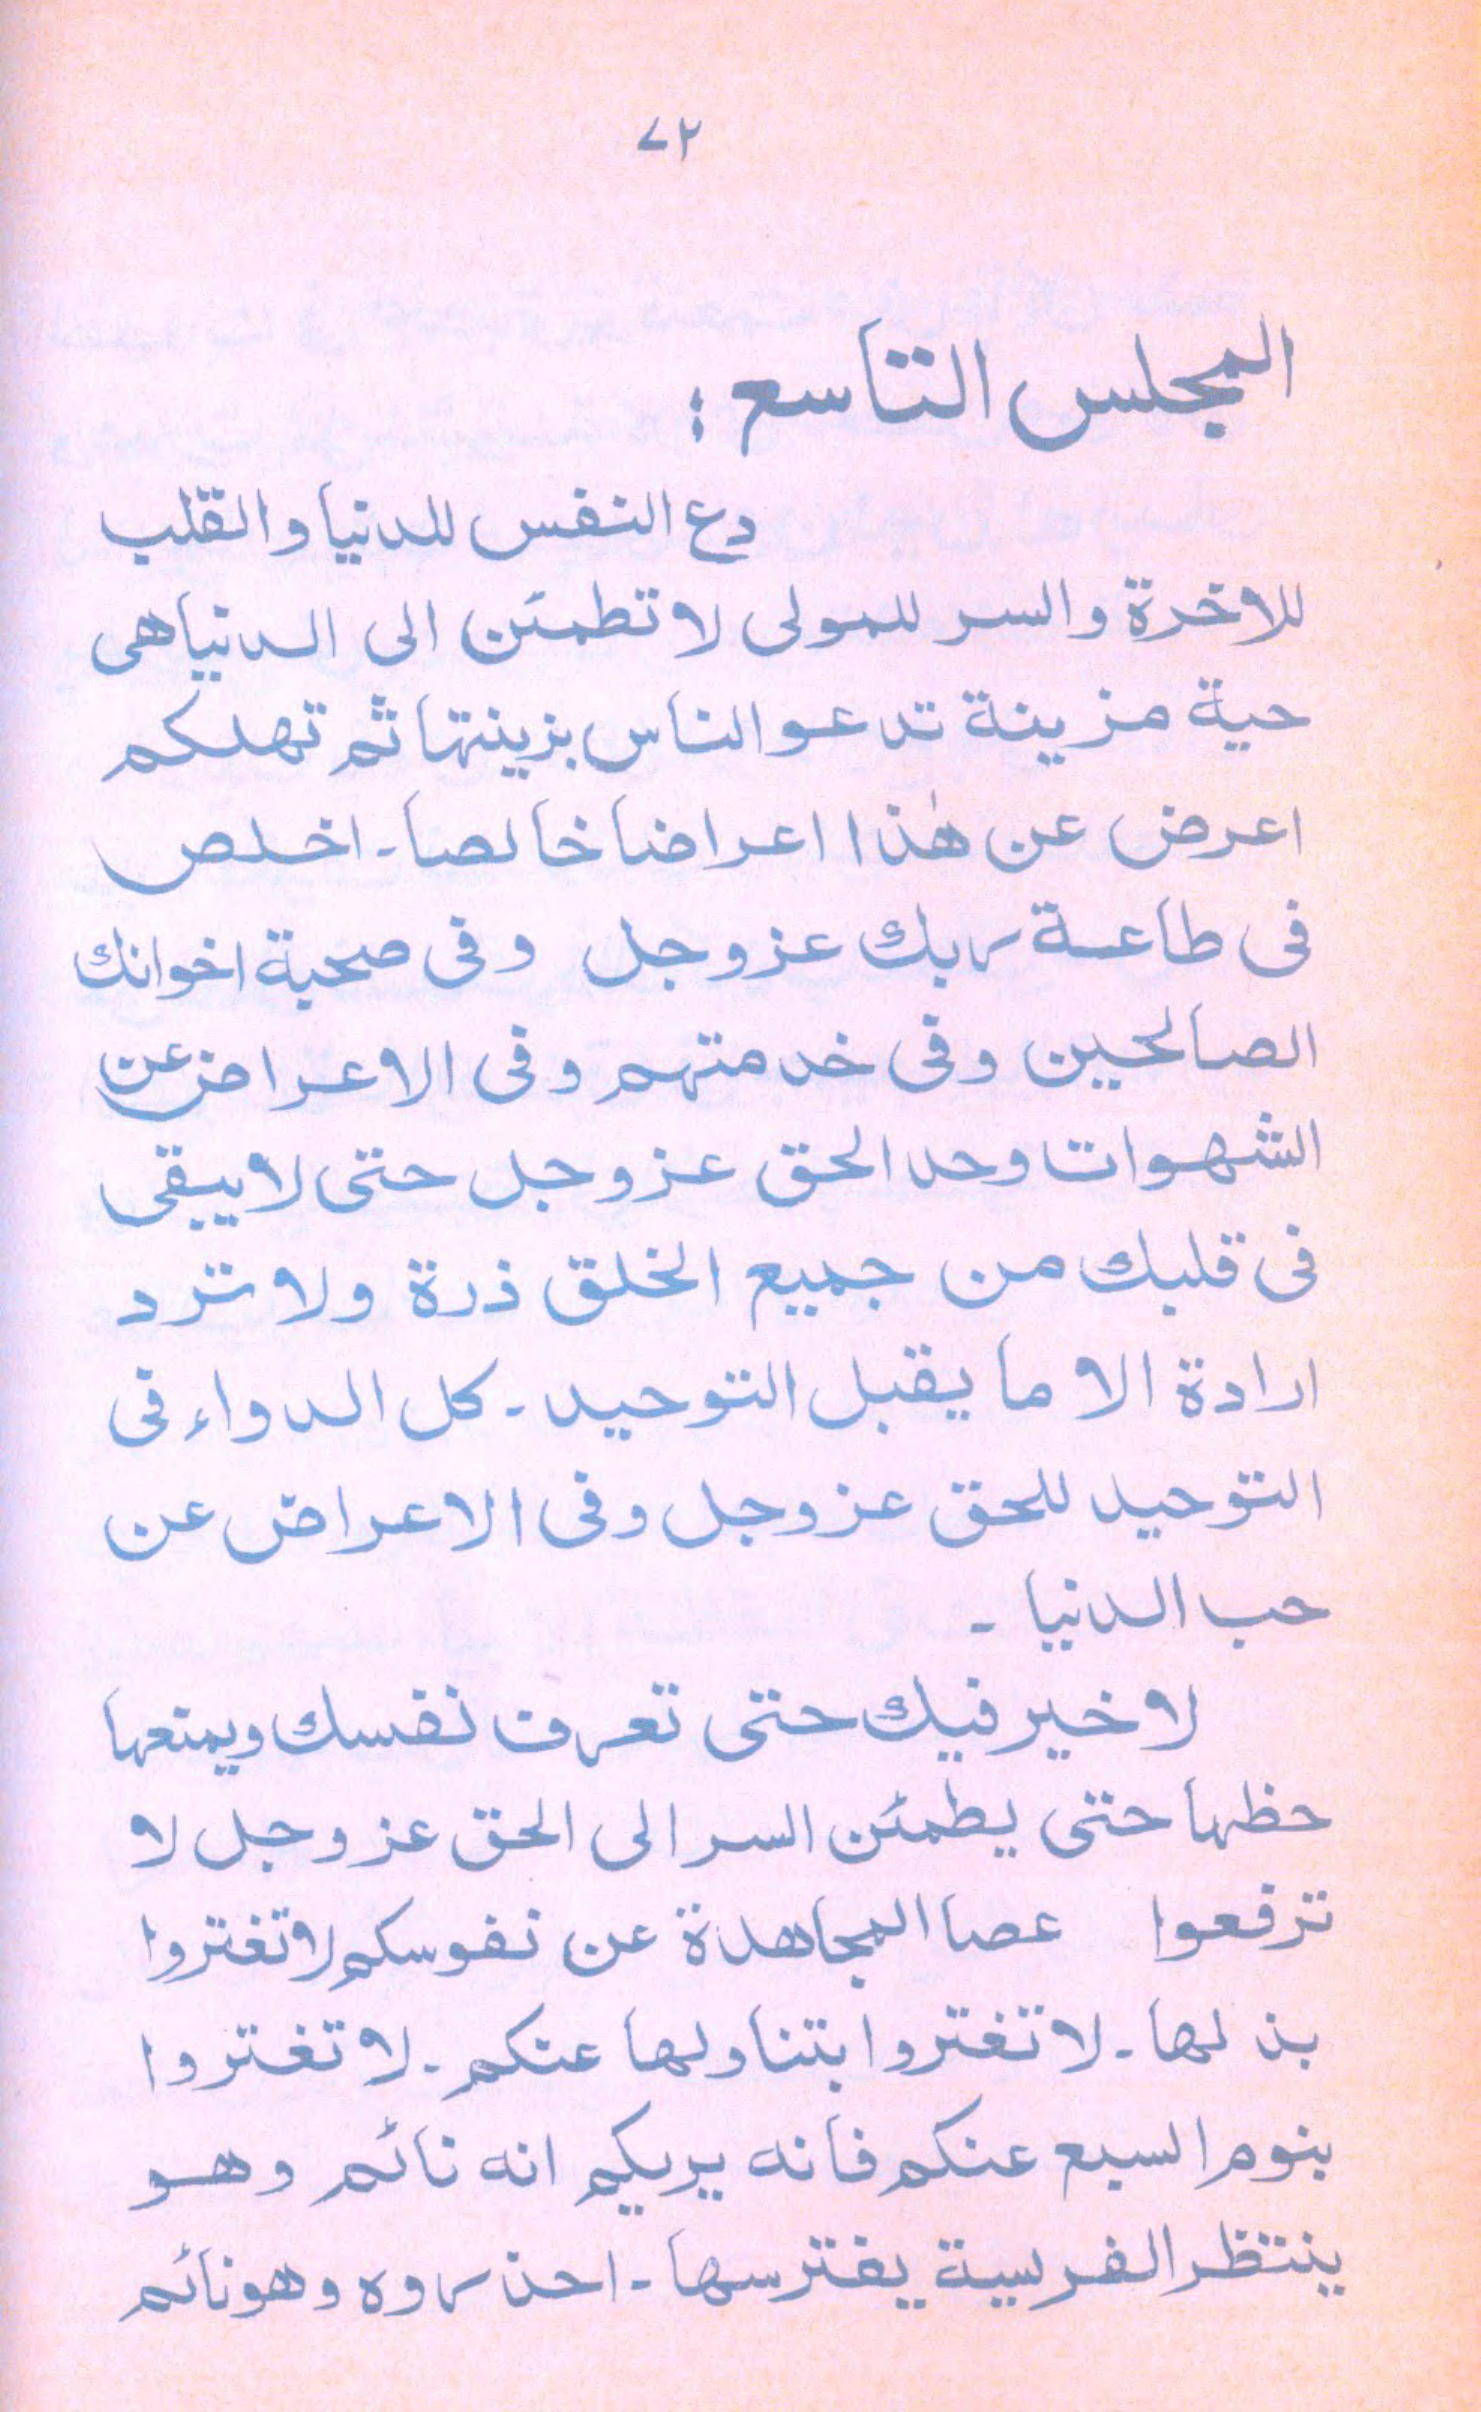 ٧٢
المجلس التاسع :
دع النفس للدنيا والقلب
للاخرة والسر للمولى لا تطمئن الى الدنيا هى
حية مزينة تدعو الناس بزينتها ثم تهلكم
اعرض عن هٰذا اعراضا خالصا ـ اخلص
فى طاعة ربك عز وجل وفى صحبة اخوانك
الصالحين وفى خدمتهم وفى الاعراض عن
الشهوات وحد الحق عز وجل حتى لا يبقى
فى قلبك من جميع الخلق ذرة ولا ترد
ارادة الا ما يقبل التوحيد ـ كل الدواء فى
التوحيد للحق عز وجل وفى الاعراض عن
حب الدنيا ـ
لا خير فيك حتى تعرف نفسك ويمنعها
حظها حتى يطمئن السر الى الحق عز وجل لا
ترفعوا عصا المجاهدة عن نفوسكم لا تغتروا
بذلها ـ لا تغتروا بتناولها عنكم ـ لا تغتروا
بنوم السبع عنكم فانه يريكم انه نائم وهو
ينتظر الفريسة يفترسها ـ احذروه وهو نائم